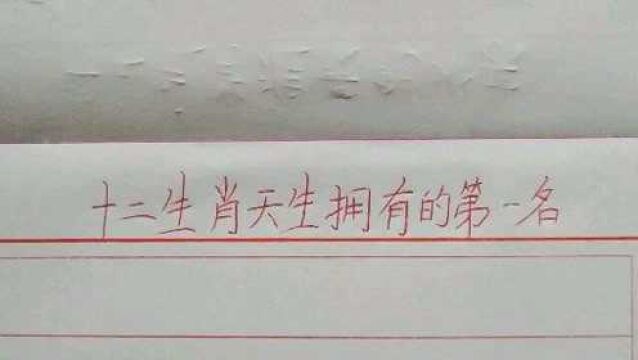 十二生肖天生拥有的第一名